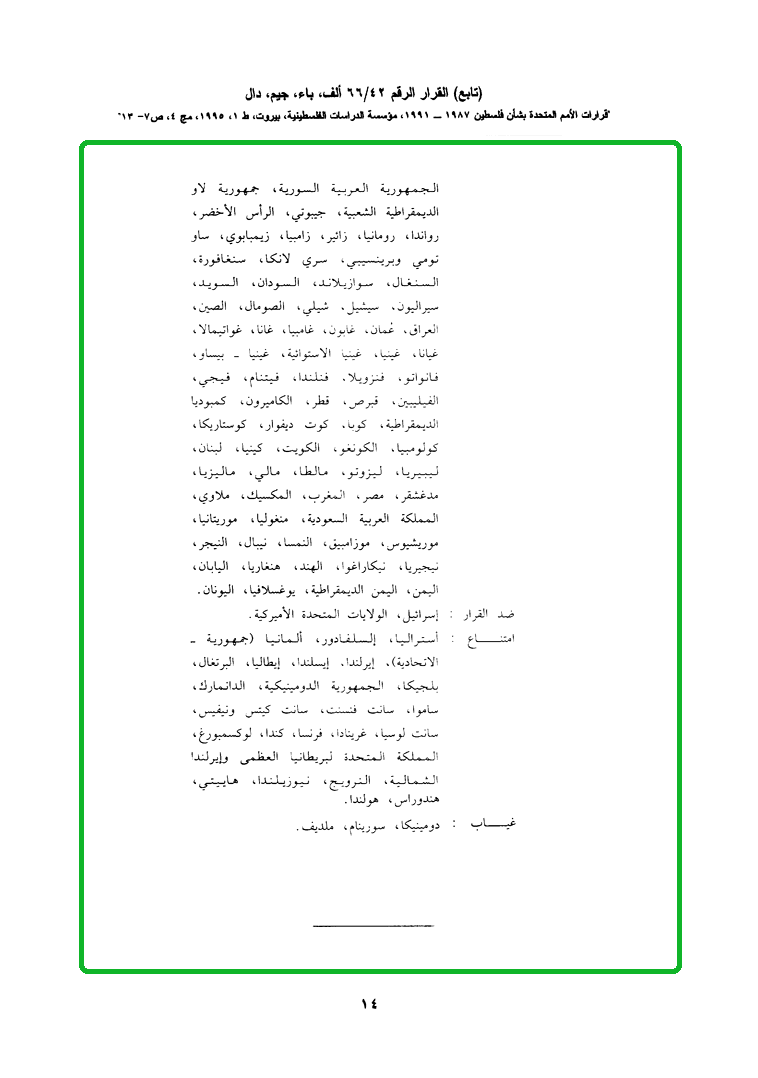 (تابع) القرار الرقم ٦٦/٤٢ ألف، باء، جيم، دال
"قرارات الأمم المتحدة بشأن فلسطين ١٩٨٧ ــ ١٩٩١، مؤسسة الدراسات الفلسطينية، بيروت، ط ١، ١٩٩٥، مج ٤، ص٧- ١٣"
الجمهورية العربية السورية، جمهورية لاو
الديمقراطية الشعبية، جيبوتي، الرأس الأخضر،
رواندا، رومانيا، زائير، زامبيا، زيمبابوي، ساو
تومي وبرينسيبي، سري لانكا، سنغافورة،
السنغال، سوازيلاند، السودان، السويد،
سيراليون، سيشيل، شيلي، الصومال، الصين،
العراق، عُمان، غابون، غامبيا، غانا، غواتيمالا،
غيانا، غينيا، غينيا الاستوائية، غينيا ـ بيساو،
فانواتو، فنزويلا، فنلندا، فيتنام، فيجي،
الفيليبين، قبرص، قطر، الكاميرون، كمبوديا
الديمقراطية، كوبا، كوت ديفوار، كوستاريكا،
كولومبيا، الكونغو، الكويت، كينيا، لبنان،
ليبيريا، ليزوتو، مالطا، مالي، ماليزيا،
مدغشقر، مصر، المغرب، المكسيك، ملاوي،
المملكة العربية السعودية، منغوليا، موريتانيا،
موريشيوس، موزامبيق، النمسا، نيبال، النيجر،
نيجيريا، نيكاراغوا، الهند، هنغاريا، اليابان،
اليمن، اليمن الديمقراطية، يوغسلافيا، اليونان.
ضد القرار : إسرائيل، الولايات المتحدة الأميركية.
امتنـــــاع : أستراليا، إلسلفادور، ألمانيا (جمهورية ـ
الاتحادية)، إيرلندا، إيسلندا، إيطاليا، البرتغال،
بلجيكا، الجمهورية الدومينيكية، الدانمارك،
ساموا، سانت فنسنت، سانت كيتس ونيفيس،
سانت لوسيا، غرينادا، فرنسا، كندا، لوكسمبورغ،
المملكة المتحدة لبريطانيا العظمى وإيرلندا
الشمالية، النرويج، نيوزيلندا، هاييتي،
هندوراس، هولندا.
غيـــــاب : دومينيكا، سورينام، ملديف.
١٤